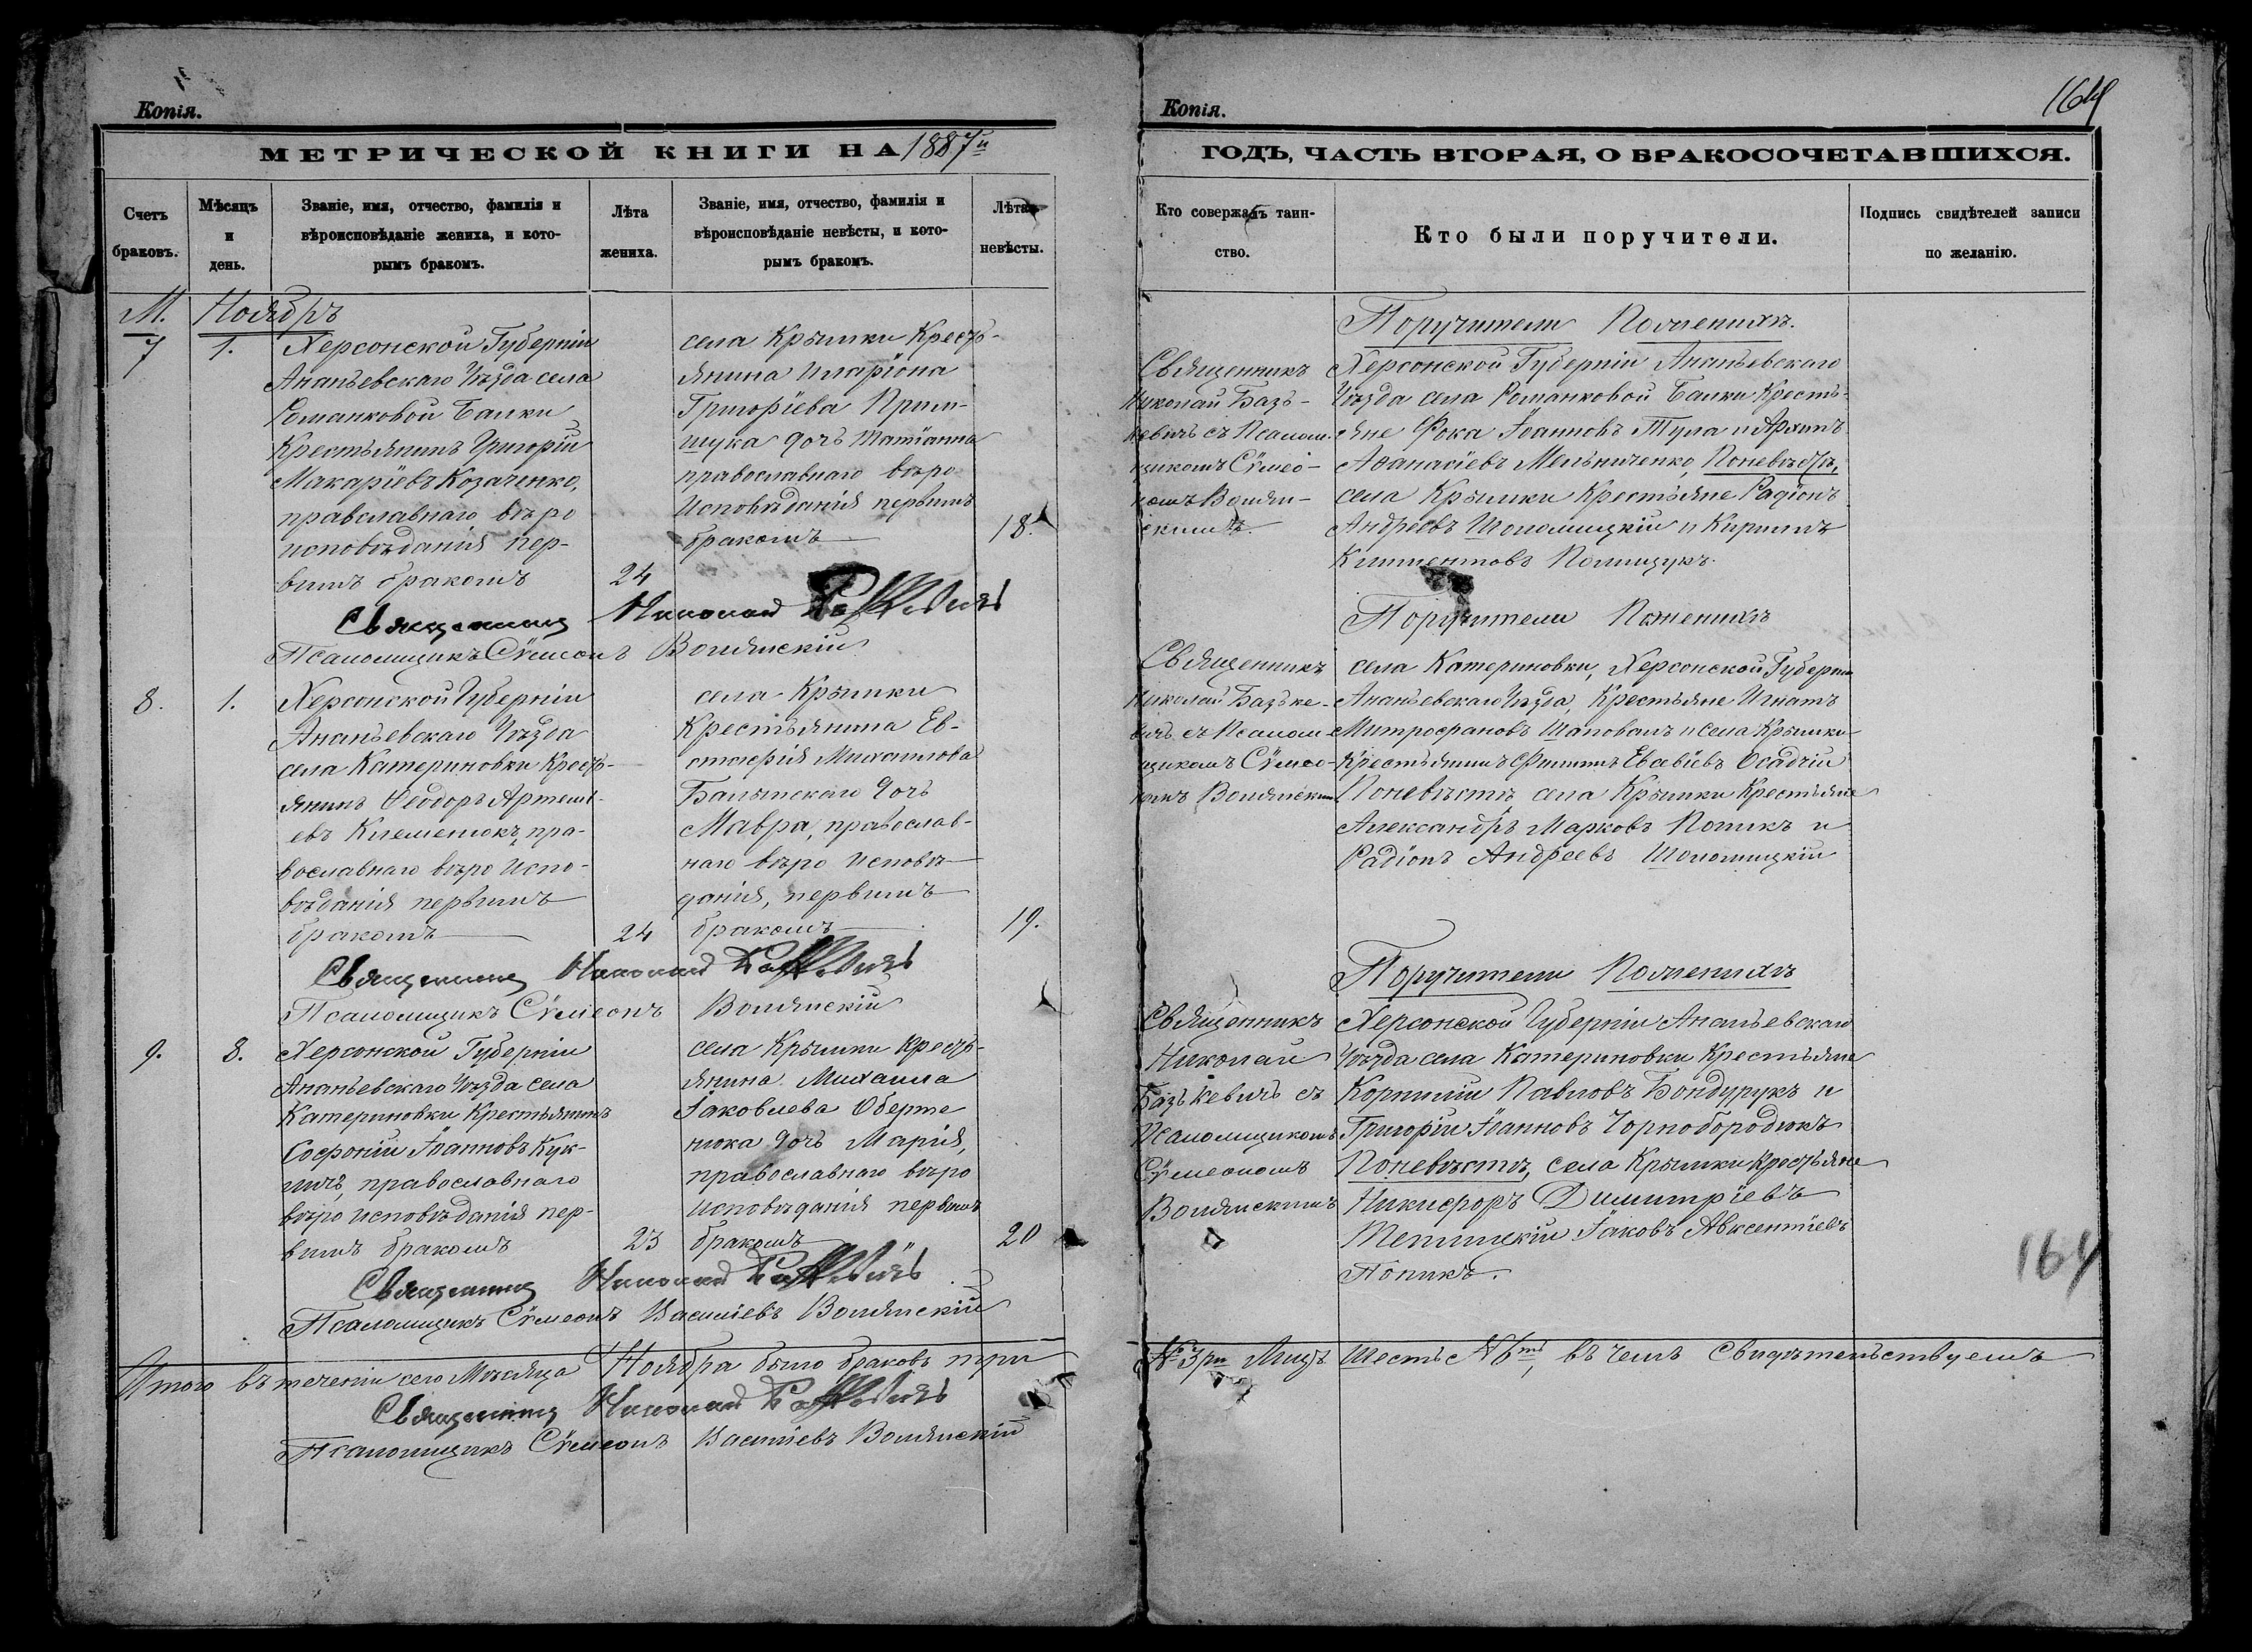 Копія.
МЕТРИЧЕСКОЙ КНИГИ НА 1887й
Счетъ браковъ.
Мѣсяцъ и день.
Званіе, имя, отчество, фамилія и вѣроисповѣданіе жениха, и которымъ бракомъ.
Лѣта жениха.
Званіе, имя, отчество, фамилія и вѣроисповѣданіе невѣсты, и которымъ бракомъ.
Лѣта невѣсты.
М. Ноябрь
7 1.
Херсонской Губерніи
Ананьевскаго Уѣзда села
Романковой Балки
Крестьянинъ Григорій
Макаріевъ Козаченко,
православнаго вѣро
исповѣданія пер-
вымъ бракомъ
24
села Крымки Кресть-
янина Иларіона
Григоріева
дочь Татіанна
православнаго вѣро
исповѣданія первымъ
бракомъ
18.
Священникъ Николай
Псаломщикъ Сѵмеонъ Волянскій
8. 1.
Херсонской Губерніи
Ананьевскаго Уѣзда
села Катериновки Кресть-
янинъ Ѳеодоръ Артемі-
евъ Клеменюкъ, пра-
вославнаго вѣро испо-
вѣданія первымъ
бракомъ
24
села Крымки
Крестьянина Ев-
стафія Михаилова
дочь
Мавра, православ-
наго вѣро исповѣ-
данія, первымъ
бракомъ
19.
Священникъ Николай
Псаломщикъ Сѵмеонъ Волянскій
9. 8.
Херсонской Губерніи
Ананьевскаго Уѣзда села
Катериновки Крестьянинъ
Софроній Іоанновъ Кук-
православнаго
вѣро исповѣданія пер-
вымъ бракомъ
23
села Крымки Кресть-
янина Михаила
Іаковлева Оберте
нюка дочь Марія,
православнаго вѣро
исповѣданія первымъ
бракомъ
20
Священникъ Николай
Псаломщикъ Сѵмеонъ Василіевъ Волянскій
Итого въ теченіи сего Мѣсяца Ноября было браковъ три
Священникъ Николай
Псаломщикъ Сѵмеонъ Василіевъ Волянскій
Копія.
164
ГОДЪ, ЧАСТЬ ВТОРАЯ, О БРАКОСОЧЕТАВШИХСЯ.
Кто совержалъ таинство.
Кто были поручители.
Подпись свидѣтелей записи по желанію.
Священникъ
Николай Базь-
кевичъ съ Псалом-
щикомъ Сѵмео-
номъ Волян-
скимъ.
Поручители По женихѣ.
Херсонской Губерніи Ананьевскаго
Уѣзда села Романковой Балки Кресть-
яне Фока Іоанновъ Тула и Архипъ
Аѳанасіевъ Мельниченко, По невѣстѣ,
села Крымки Крестьяне Радіонъ
Андреевъ Шоломицкій и Кириллъ
Климентовъ Полищукъ.
Священникъ
Николай Базьке-
вичъ съ Псалом-
щикомъ Сѵмео-
номъ Волянскимъ
Поручители По женихѣ
села Катериновки, Херсонской Губерніи
Ананьевскаго Уѣзда, Крестьяне Игнатъ
Митрофановъ Шаповалъ и села Крымки
Крестьянинъ Филиппъ Евсевіевъ Осадчій
По невѣстѣ села Крымки Крестьяне
Александръ Марковъ Попикъ и
Радіонъ Андреевъ Шоломицкій
Священникъ
Николай
Базькевичъ съ
Псаломщикомъ
Сѵмеономъ
Волянскимъ
Поручители По женихѣ
Херсонской Губерніи Ананьевскаго
Уѣзда села Катериновки Крестьяне
Корнилій Павловъ Бондурукъ и
Григорій Іоанновъ Чорнобородюкъ
По невѣстѣ, села Крымки Крестьяне
Никифоръ Димитріевъ
Теплицкій Іаковъ Авксентіевъ
Попикъ.
164
№ 3 Шесть № 6ть, въ чемъ Свидѣтельствуемъ